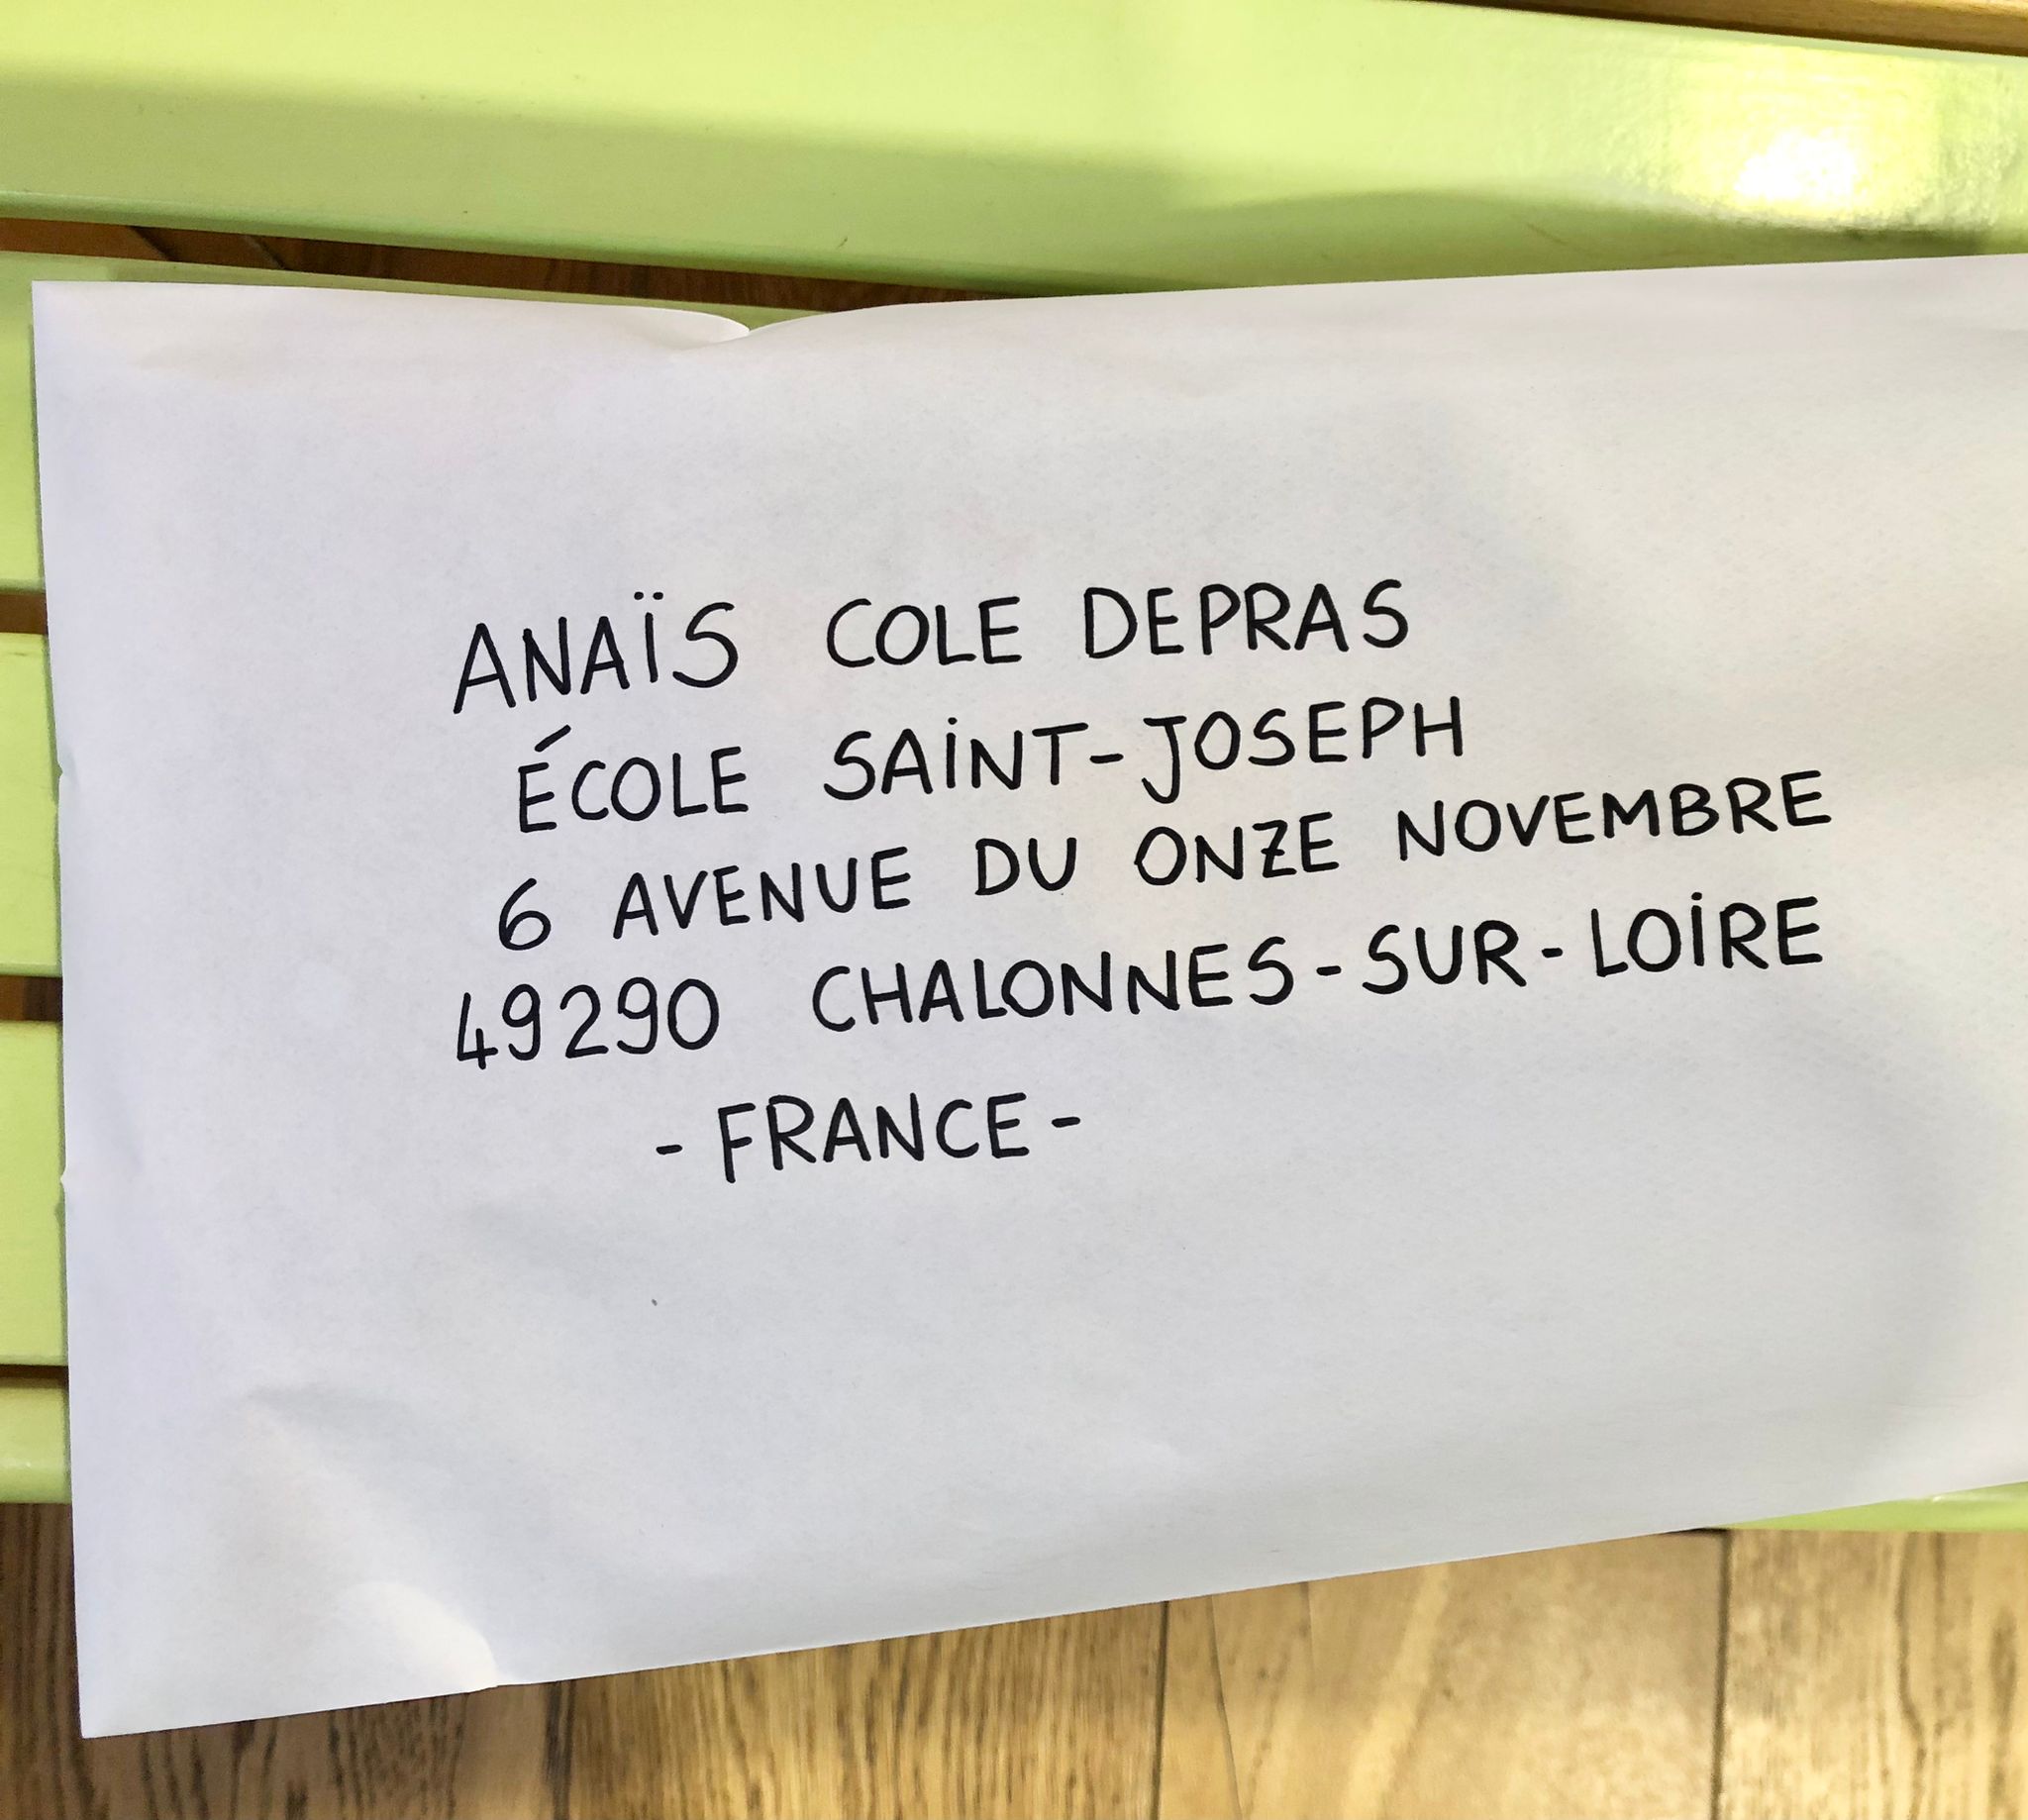 ANAÏS COLE DEPRAS
ÉCOLE SAINT-JOSEPH
6 AVENUE DU ONZE NOVEMBRE
49290 CHALONNES-SUR-LOIRE
- FRANCE -